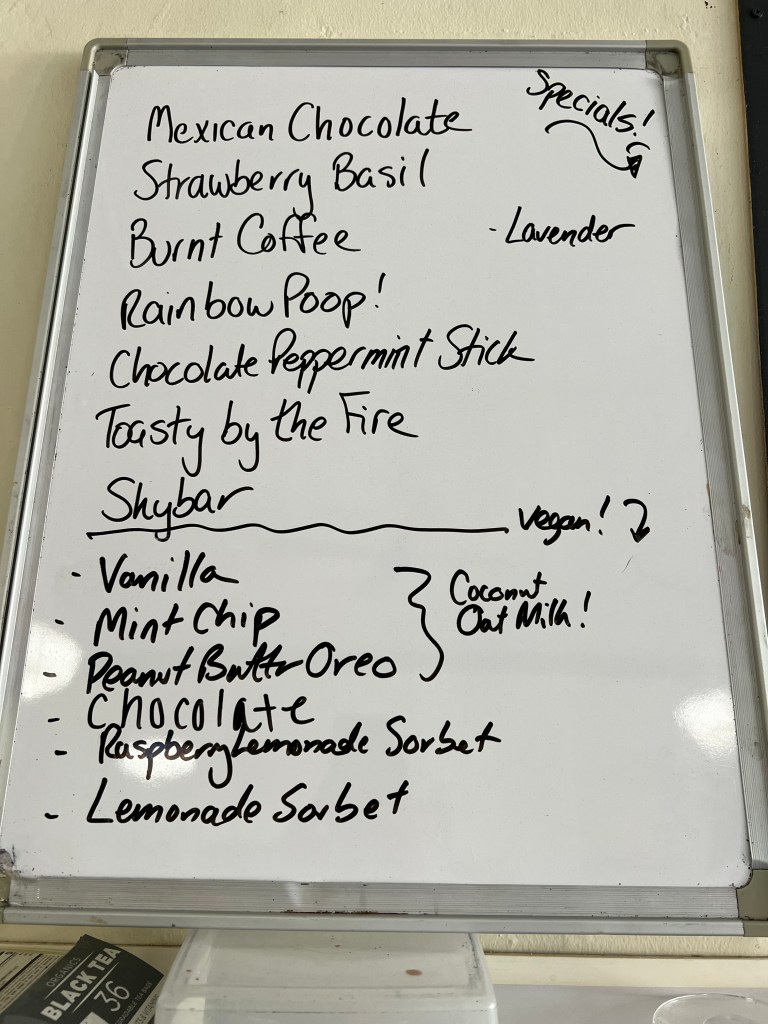 Specials!
Mexican Chocolate
Strawberry Basil
Burnt Coffee
- Lavender
Rainbow Poop!
Chocolate Peppermint Stick
Toasty by the Fire
Skybar
Vegan!
- Vanilla
- Mint Chip
Coconut
Oat Milk!
- Peanut Buttr Oreo
- Chocolate
- Raspberry Lemonade Sorbet
- Lemonade Sorbet
ORGANICS
BLACK TEA
36